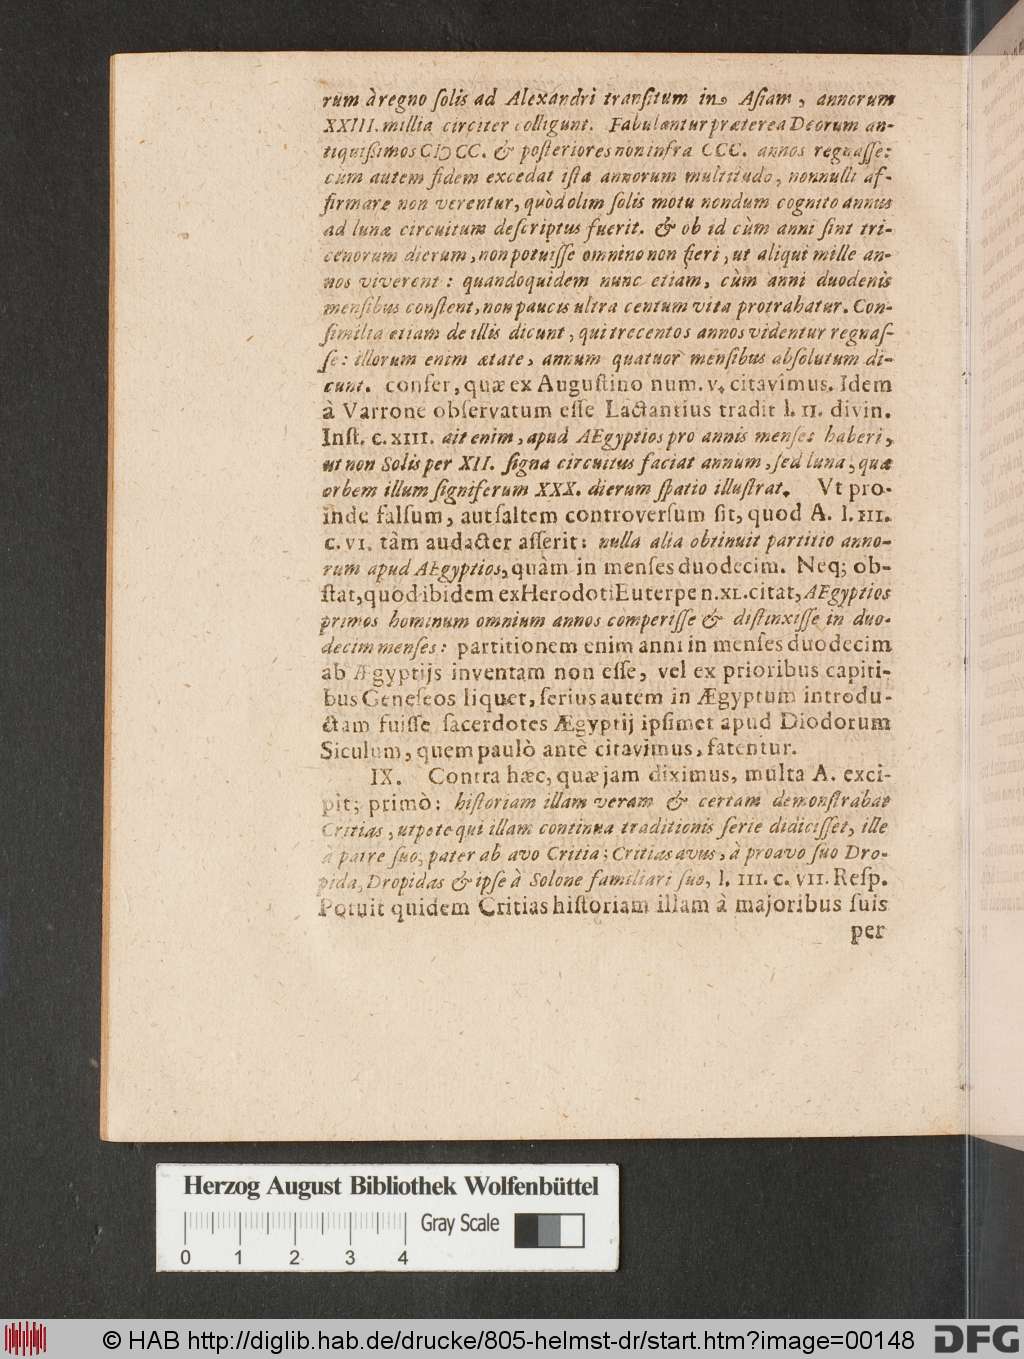 rum à regno ſolis ad Alexandri tranſitum in Aſiam, annorum
XXIII. millia circiter colligunt. Fabulantur præterea Deorum an-
tiquiſsimos CIƆCC. & poſteriores non infra CCC. annos regnaſſe:
cùm autem fidem excedat iſta annorum multitudo, nonnulli af-
firmare non verentur, quòd olim ſolis motu nondum cognito annus
ad lunæ circuitum deſcriptus fuerit. & ob id cùm anni ſint tri-
cenorum dierum, non potuiſſe omnino non fieri, ut aliqui mille an-
nos viverent: quandoquidem nunc etiam, cùm anni duodenis
menſibus conſtent, non paucis ultra centum vita protrahatur. Con-
ſimilia etiam de illis dicunt, qui trecentos annos videntur regnaſ-
ſe: illorum enim ætate, annum quatuor menſibus abſolutum di-
cunt. confer, quæ ex Auguſtino num. v. citavimus. Idem
à Varrone obſervatum eſſe Lactantius tradit l. II. divin.
Inſt. c. XIII. ait enim, apud AEgyptios pro annis menſes haberi,
ut non Solis per XII. ſigna circuitus faciat annum, ſed luna, quæ
orbem illum ſigniferum XXX. dierum ſpatio illuſtrat. Vt pro-
inde falſum, aut ſaltem controverſum ſit, quod A. l. III.
c. VI. tàm audacter aſſerit: nulla alia obtinuit partitio anno-
rum apud AEgyptios, quàm in menſes duodecim. Neq; ob-
ſtat, quod ibidem ex Herodoti Euterpe n. XL. citat, AEgyptios
primos hominum omnium annos comperiſſe & diſtinxiſſe in duo-
decim menſes: partitionem enim anni in menſes duodecim
ab Ægyptijs inventam non eſſe, vel ex prioribus capiti-
bus Geneſeos liquet, ſerius autem in Ægyptum introdu-
ctam fuiſſe ſacerdotes Ægyptij ipſimet apud Diodorum
Siculum, quem paulò antè citavimus, fatentur.
IX. Contra hæc, quæ jam diximus, multa A. exci-
pit; primò: hiſtoriam illam veram & certam demonſtrabat
Critias, utpote qui illam continua traditionis ſerie didiciſſet, ille
à patre ſuo; pater ab avo Critia; Critias avus, à proavo ſuo Dro-
pida, Dropidas & ipſe à Solone familiari ſuo, l. III. c. VII. Reſp.
Potuit quidem Critias hiſtoriam illam à majoribus ſuis
per
Herzog August Bibliothek Wolfenbüttel
0 1 2 3 4
Gray Scale
© HAB http://diglib.hab.de/drucke/805-helmst-dr/start.htm?image=00148
DFG